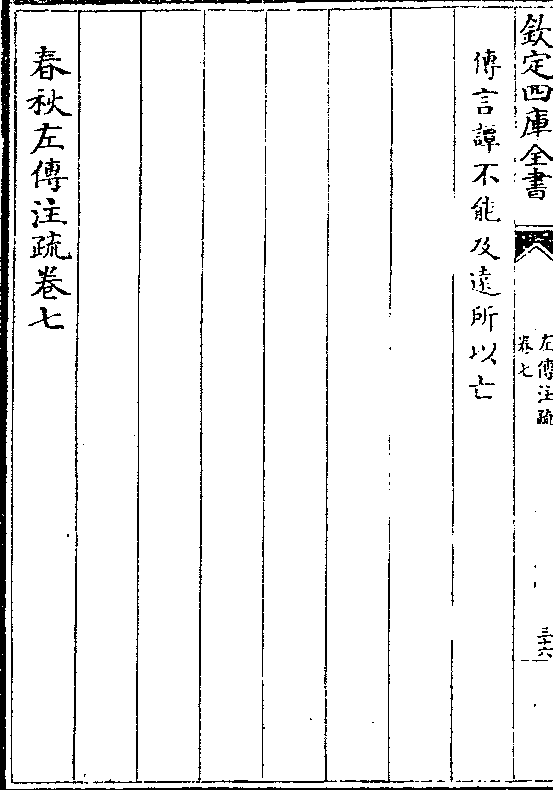 欽定四庫全書
左傳注疏
卷七
三十六
傳言譚不能及遠所以亡
春秋左傳注疏卷七